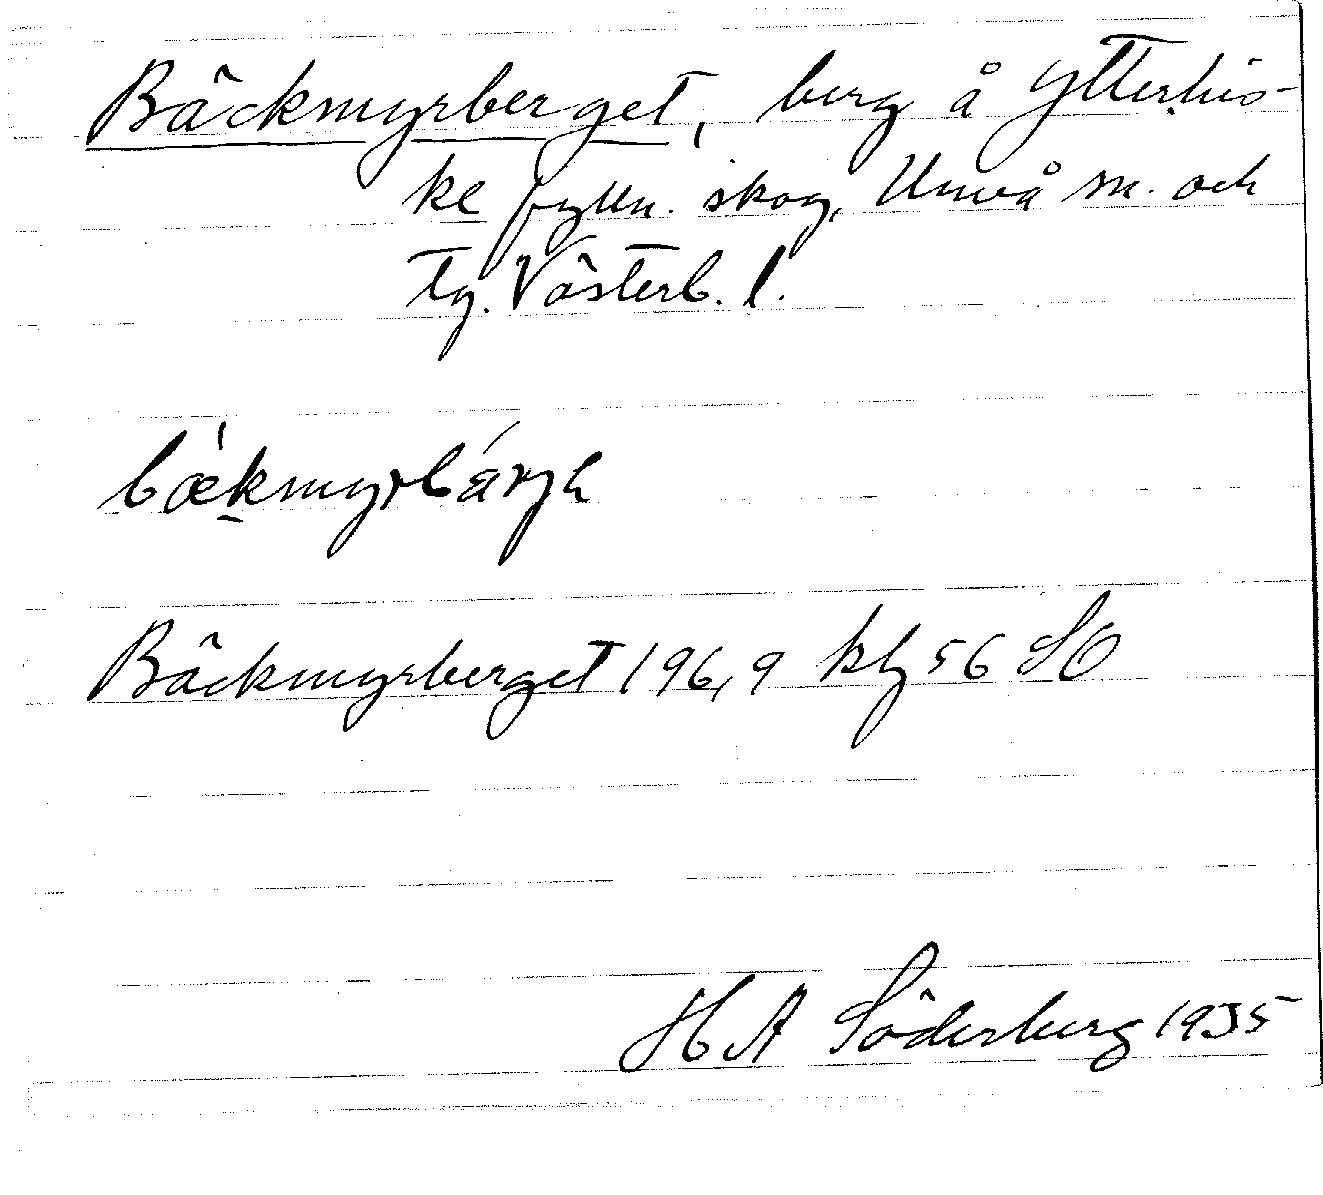 Bäckmyrberget, berg å Ytterhis-
ke fylln. skog, Umeå sn. och
tg. Västerb. l.
bǽkmyrbárjə
Bäckmyrberget 196,9 kbl 56 SO
H A Söderberg 1935